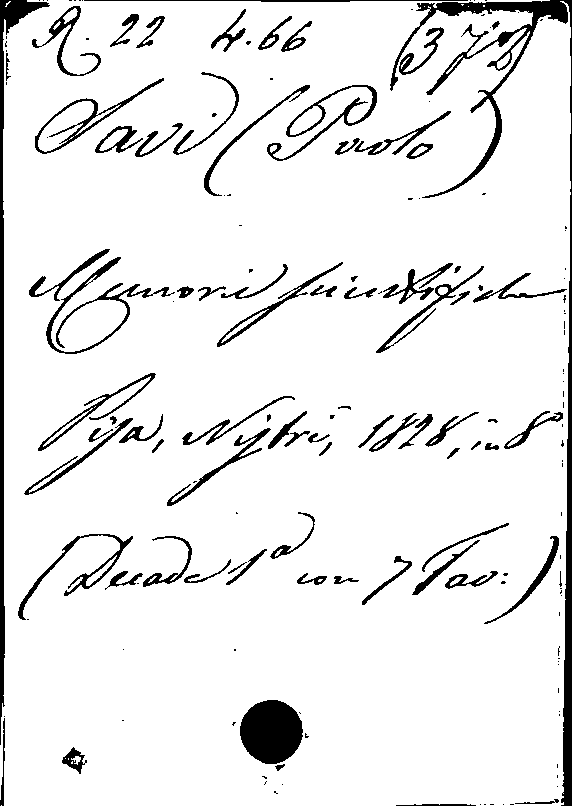 R. 22 4.66 (372)
Savi (Paolo)
Memorie scientifiche
Pisa, Nistri, 1828, in 8º
(Decade 1ª con 7 Tav:)